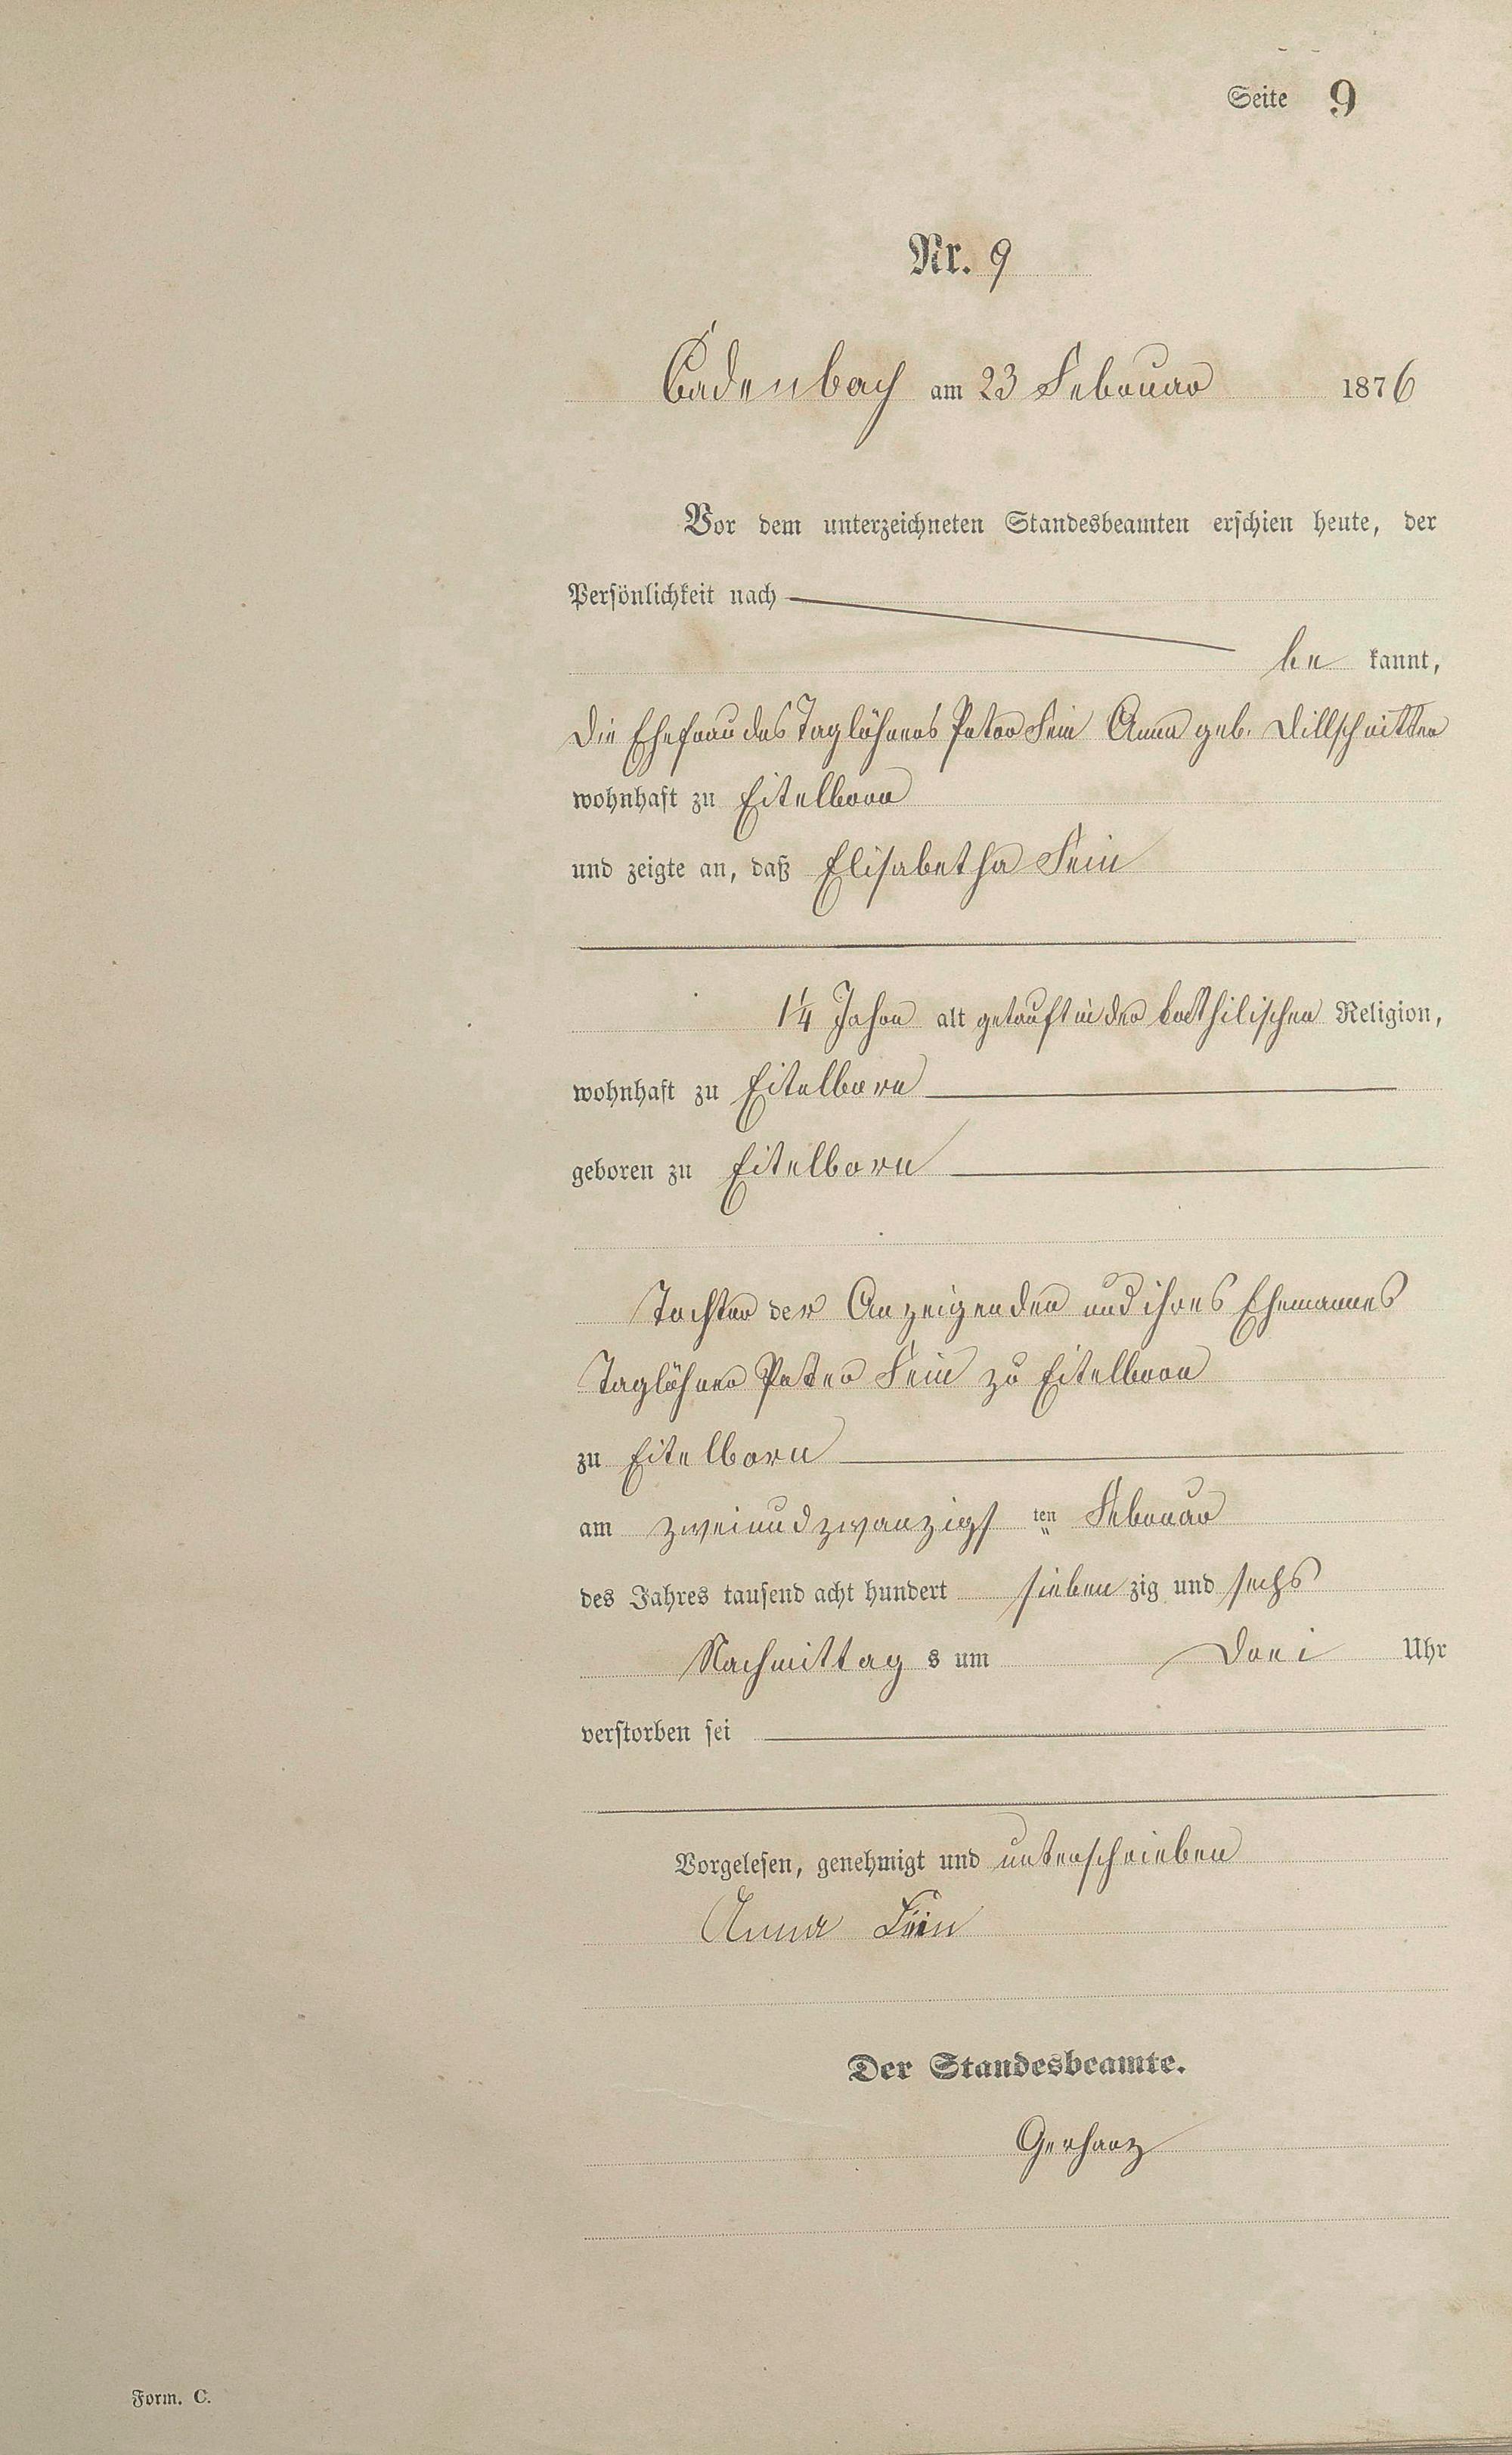 Seite 9
Nr. 9
Cadenbach am 23 Februar 1876
Vor dem unterzeichneten Standesbeamten erschien heute, der
Persönlichkeit nach
be kannt,
die Ehefrau des Taglöhners Peter Fein Anna geb. Dillschnitter
wohnhaft zu Eitelborn
und zeigte an, daß Elisabetha Fein
1 1/4 Jahre alt getauft in der katholischen Religion,
wohnhaft zu Eitelborn
geboren zu Eitelborn
Tochter der Anzeigenden und ihres Ehemannes
Taglöhner Peter Fein zu Eitelborn
zu Eitelborn
am zweiundzwanzigs ten Februar
des Jahres tausend acht hundert sieben zig und sechs
Nachmittag s um drei Uhr
verstorben sei
Vorgelesen, genehmigt und unterschrieben
Anna Fein
Der Standesbeamte.
Gerharz
Form. C.